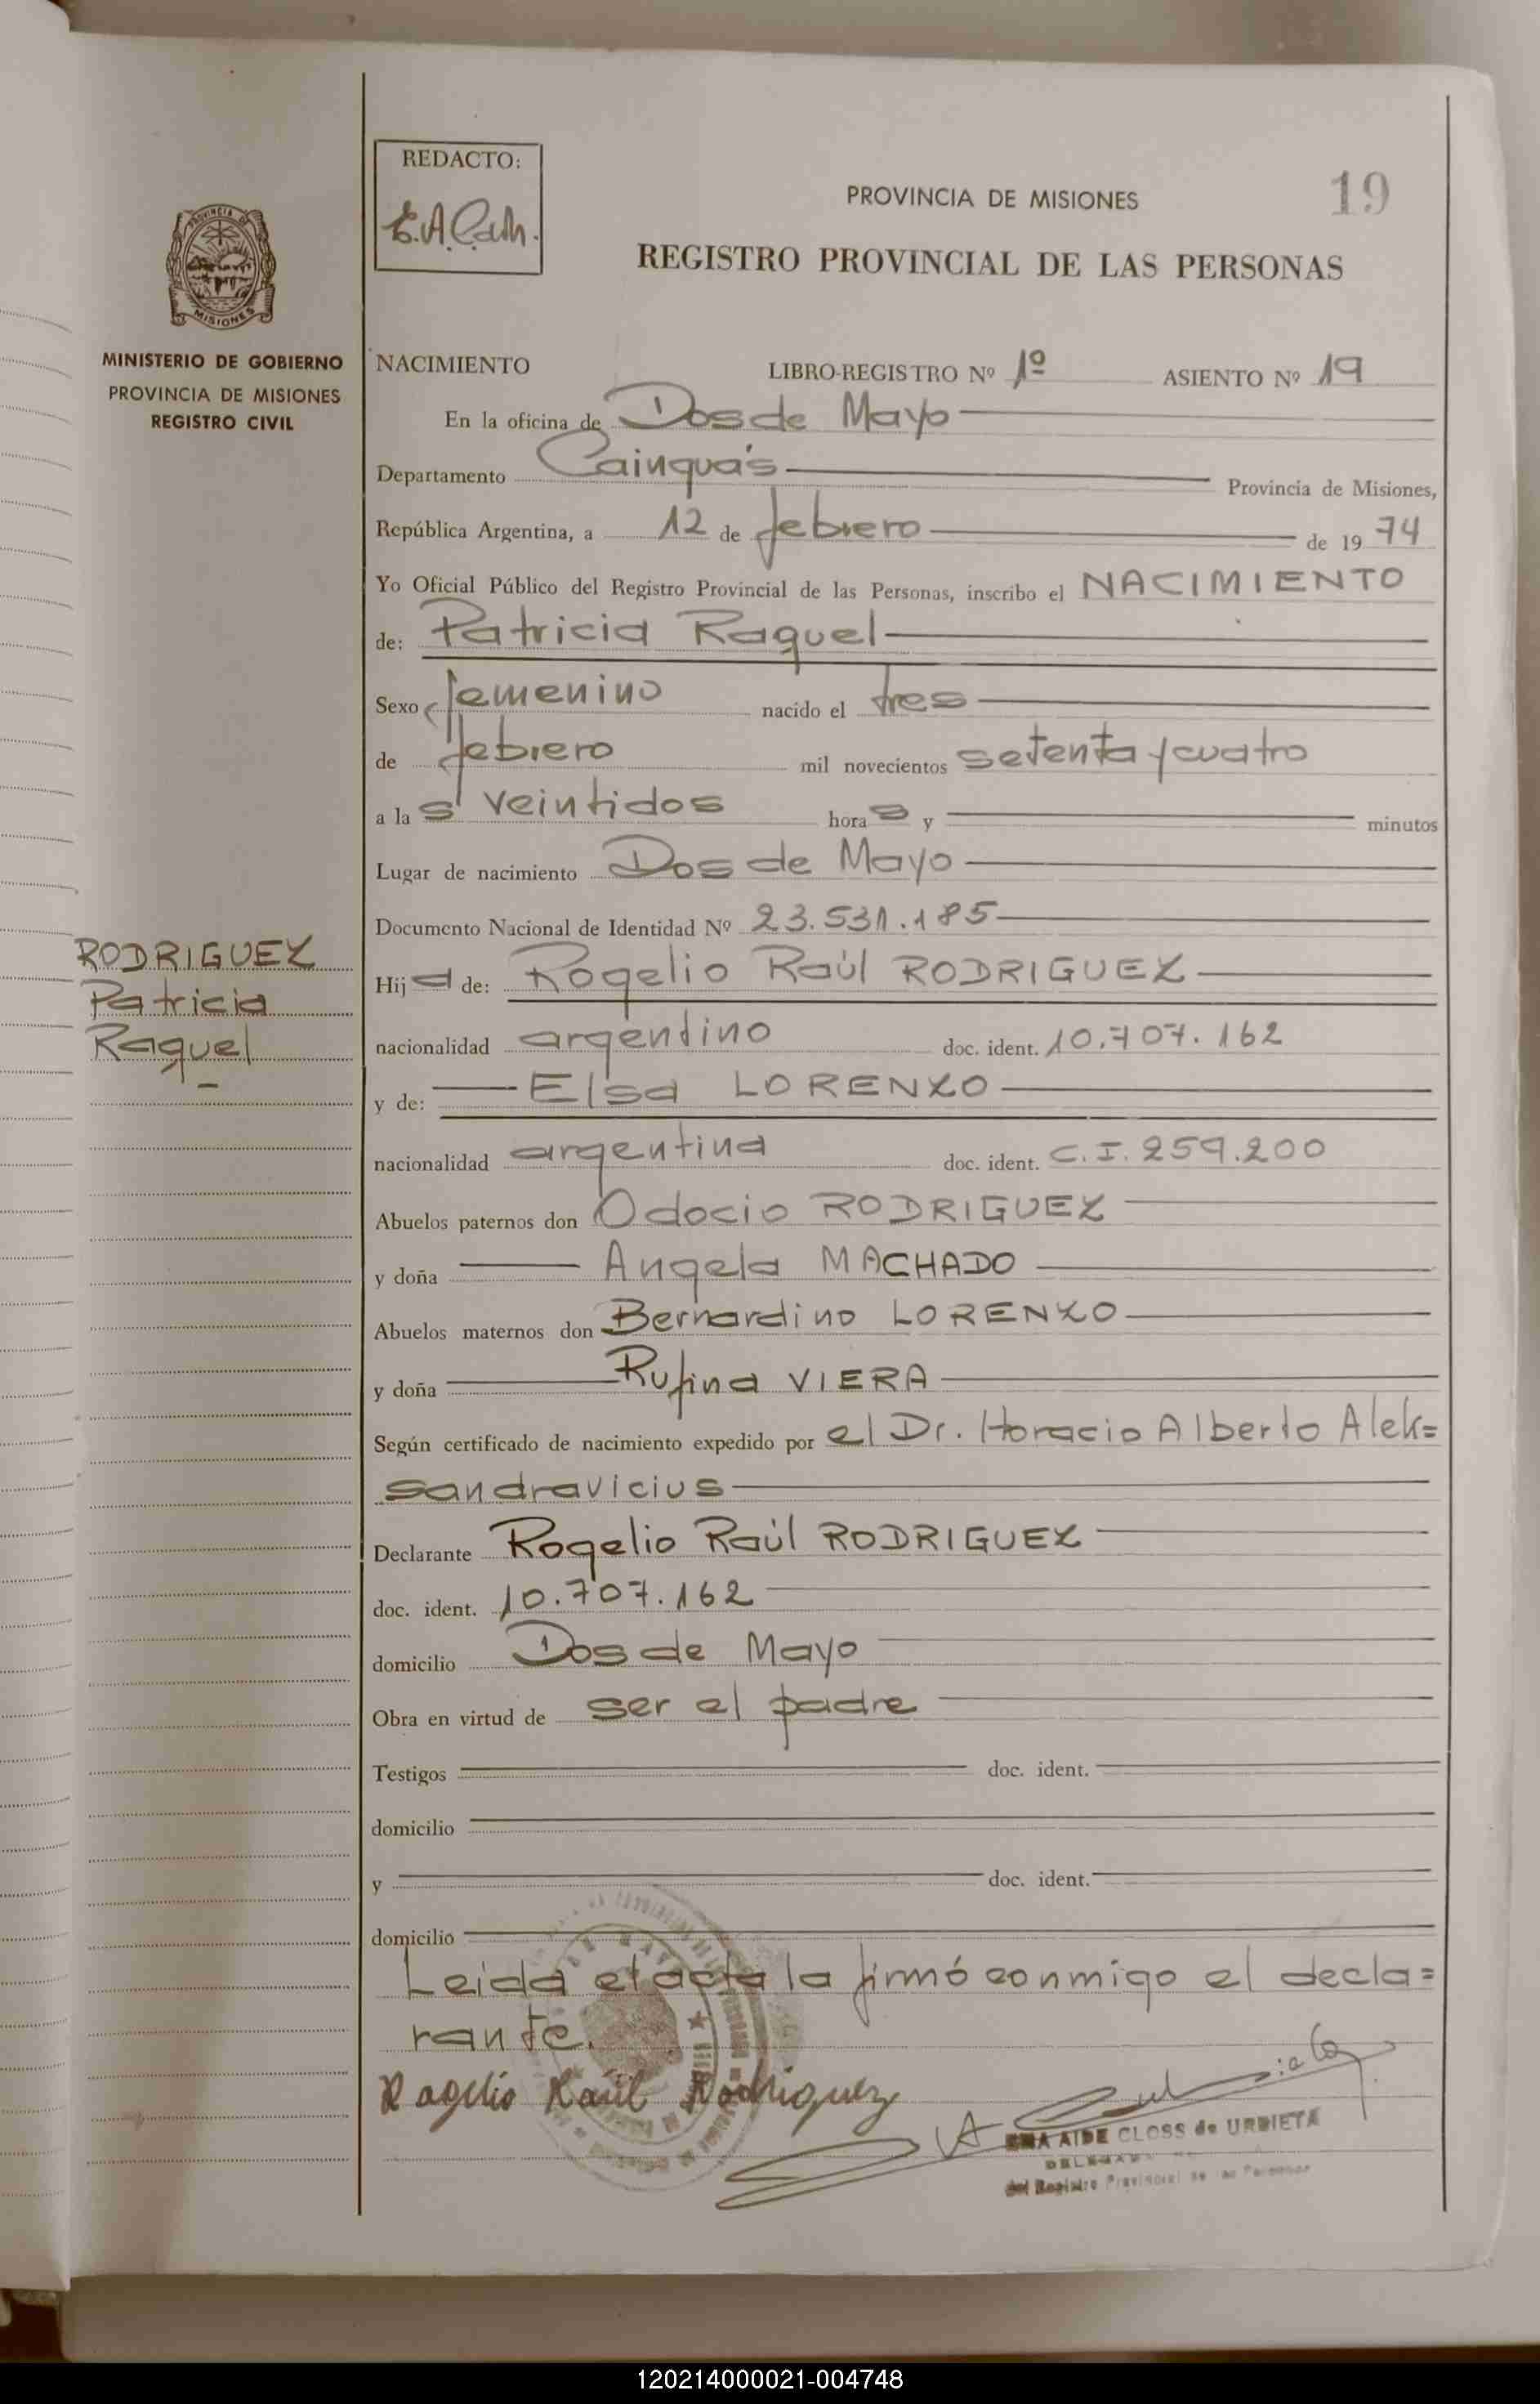 REDACTO:
E.A.Cam.
PROVINCIA DE MISIONES
19
REGISTRO PROVINCIAL DE LAS PERSONAS
PROVINCIA DE
MISIONES
MINISTERIO DE GOBIERNO
PROVINCIA DE MISIONES
REGISTRO CIVIL
NACIMIENTO LIBRO-REGISTRO Nº 1º ASIENTO Nº 19
En la oficina de Dos de Mayo
Departamento Cainguás Provincia de Misiones,
República Argentina, a 12 de febrero de 19 74
Yo Oficial Público del Registro Provincial de las Personas, inscribo el NACIMIENTO
de: Patricia Raquel
Sexo femenino nacido el tres
de febrero mil novecientos setenta y cuatro
a la s veintidos hora s y minutos
Lugar de nacimiento Dos de Mayo
Documento Nacional de Identidad Nº 23.531.185
RODRIGUEZ
Patricia
Raquel
Hij a de: Rogelio Raúl RODRIGUEZ
nacionalidad argentino doc. ident. 10.707.162
y de: Elsa LORENZO
nacionalidad argentina doc. ident. C.I. 259.200
Abuelos paternos don Odocio RODRIGUEZ
y doña Angela MACHADO
Abuelos maternos don Bernardino LORENZO
y doña Rufina VIERA
Según certificado de nacimiento expedido por el Dr. Horacio Alberto Alek=
sandravicius
Declarante Rogelio Raúl RODRIGUEZ
doc. ident. 10.707.162
domicilio Dos de Mayo
Obra en virtud de ser el padre
Testigos doc. ident.
domicilio
y doc. ident.
domicilio
Leida el acta la firmó conmigo el decla=
rante.
Rogelio Raúl Rodriguez
AIDE CLOSS de URBIETA
del Registro Provincial de las Personas
120214000021-004748